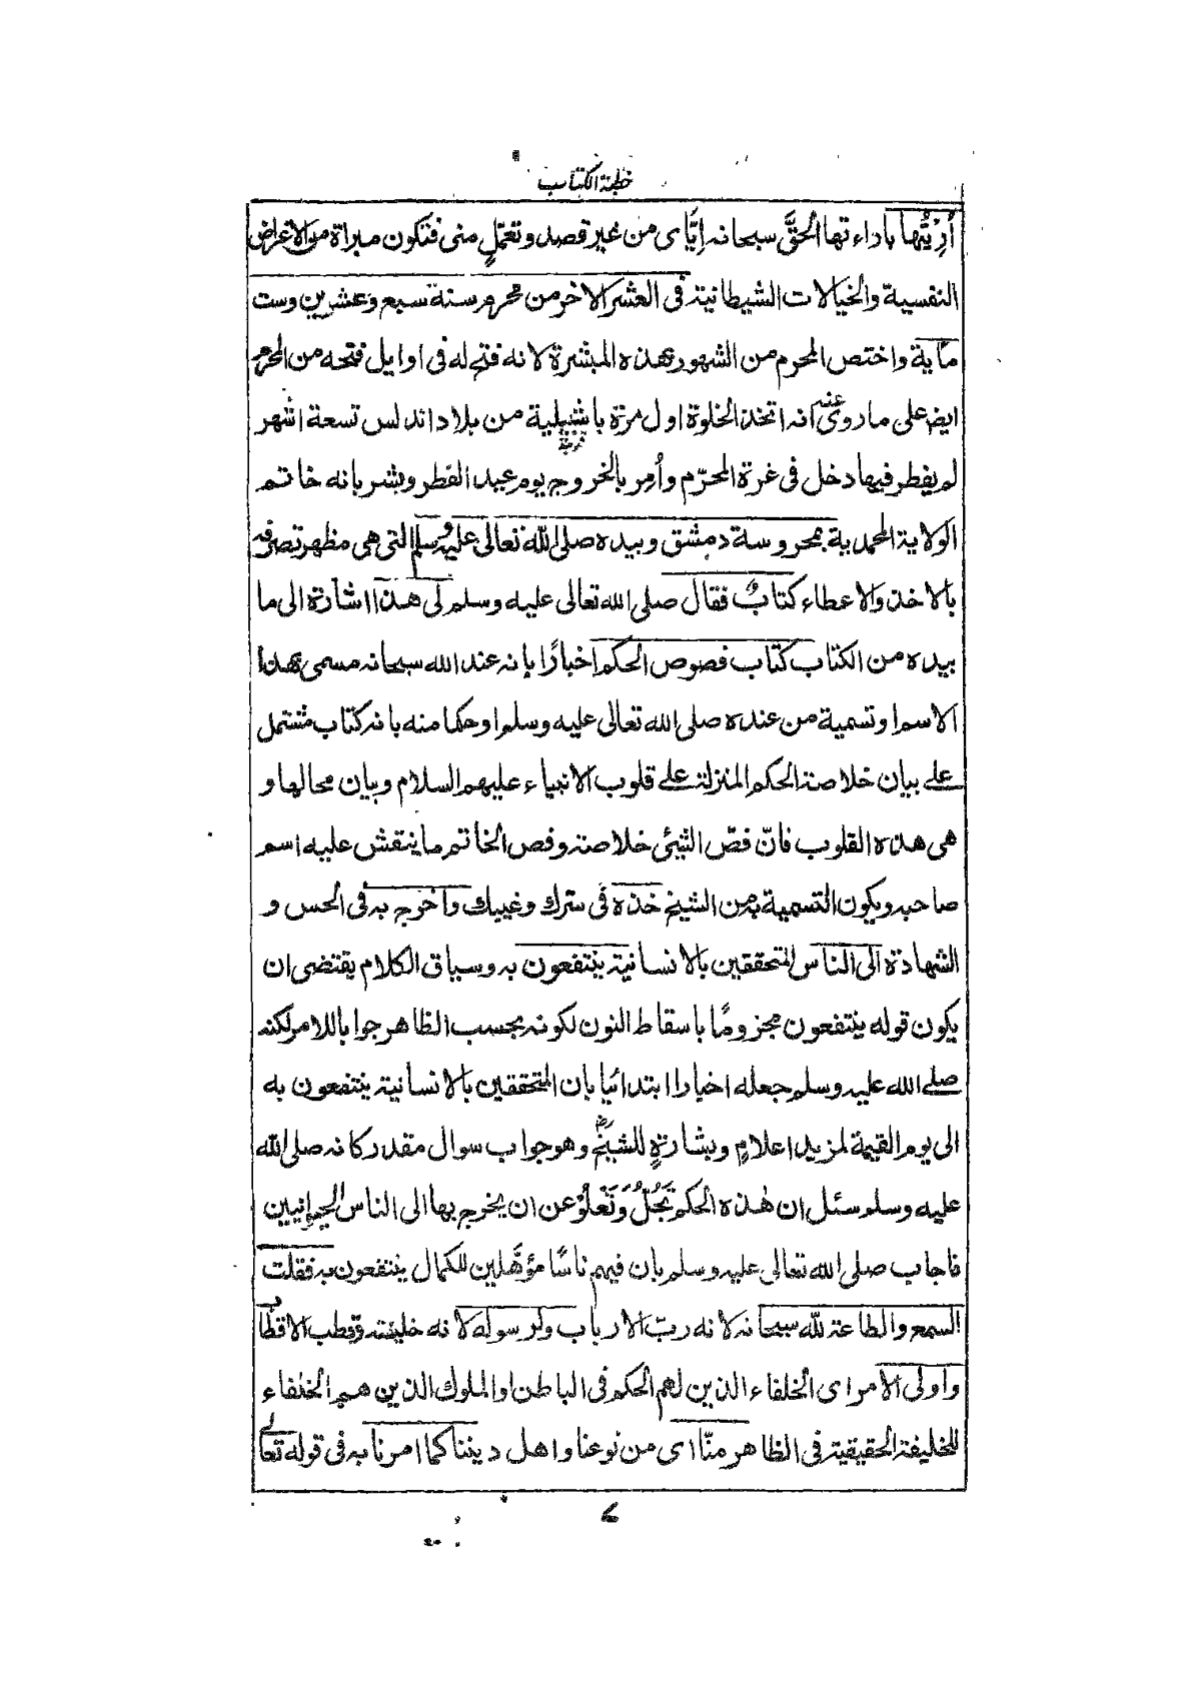 خطبة الكتاب
أُرِيْتُها باداءتها الحقَّ سبحانه اِيَّاى من غير قصد وتعمّلٍ منى فتكون مبراة من الاغراض
النفسية والخيالات الشيطانية فى العشر الاخر من محرم سنة سبع وعشرين وست
مأية واختص المحرم من الشهور بهذه المبشرة لانه فتح له فى اوايل فتحه من المحرم
ايض على ما روى عنه انه اتخذ الخلوة اول مرة باشبيلية من بلاد اندلس تسعة اشهر
لم يفطر فيها دخل فى غرة المحرّم وأُمِر بالخروج يوم عيد الفطر وبشر بانه خاتم
الولاية المحمدية بمحروسة دمشق وبيده صلى الله تعالى عليه وسلم التى هى مظهر تصرفه
بالاخذ والاعطاء كتابٌ فقال صلى الله تعالى عليه وسلم لى هذا اشارة الى ما
بيده من الكتاب كتاب فصوص الحكم اخبارًا بانه عند الله سبحانه مسمى بهذا
الاسم او تسمية من عنده صلى الله تعالى عليه وسلم او حكما منه بانه كتاب مشتمل
على بيان خلاصة الحكم المنزلة على قلوب الانبياء عليهم السلام وبيان محالها و
هى هذه القلوب فانّ فصّ الشئ خلاصته وفص الخاتم ما ينقش عليه اسم
صاحبه ويكون التسمية به من الشيخ خذه فى سترك وغيبك واخرج به فى الحس و
الشهادة الى الناس المتحققين بالانسانية ينتفعون به وسياق الكلام يقتضى ان
يكون قوله ينتفعون مجزومًا باسقاط النون لكونه بحسب الظاهر جوابا للامر لكنه
صلى الله عليه وسلم جعله اخبارا ابتدائيا بان المتحققين بالانسانية ينتفعون به
الى يوم القيمة لمزيد اعلامٍ وبشارةٍ للشيخ وهو جواب سوال مقدر كانه صلى الله
عليه وسلم سئل ان هذه الحكم تَجُلُّ وَتَعْلُوْ عن ان يخرج بها الى الناس الحيوانيين
فاجاب صلى الله تعالى عليه وسلم بان فيهم ناسًا مؤهَّلين للكمال ينتفعون به فقلت
السمع والطاعة لله سبحانه لانه ربّ الارباب ولرسوله لانه خليفته وقطب الاقطاب
واولى الامر اى الخلفاء الذين لهم الحكم فى الباطن او الملوك الذين هم الخلفاء
للخليفة الحقيقية فى الظاهر منّا اى من نوعنا واهل ديننا كما امرنا به فى قوله تعالى